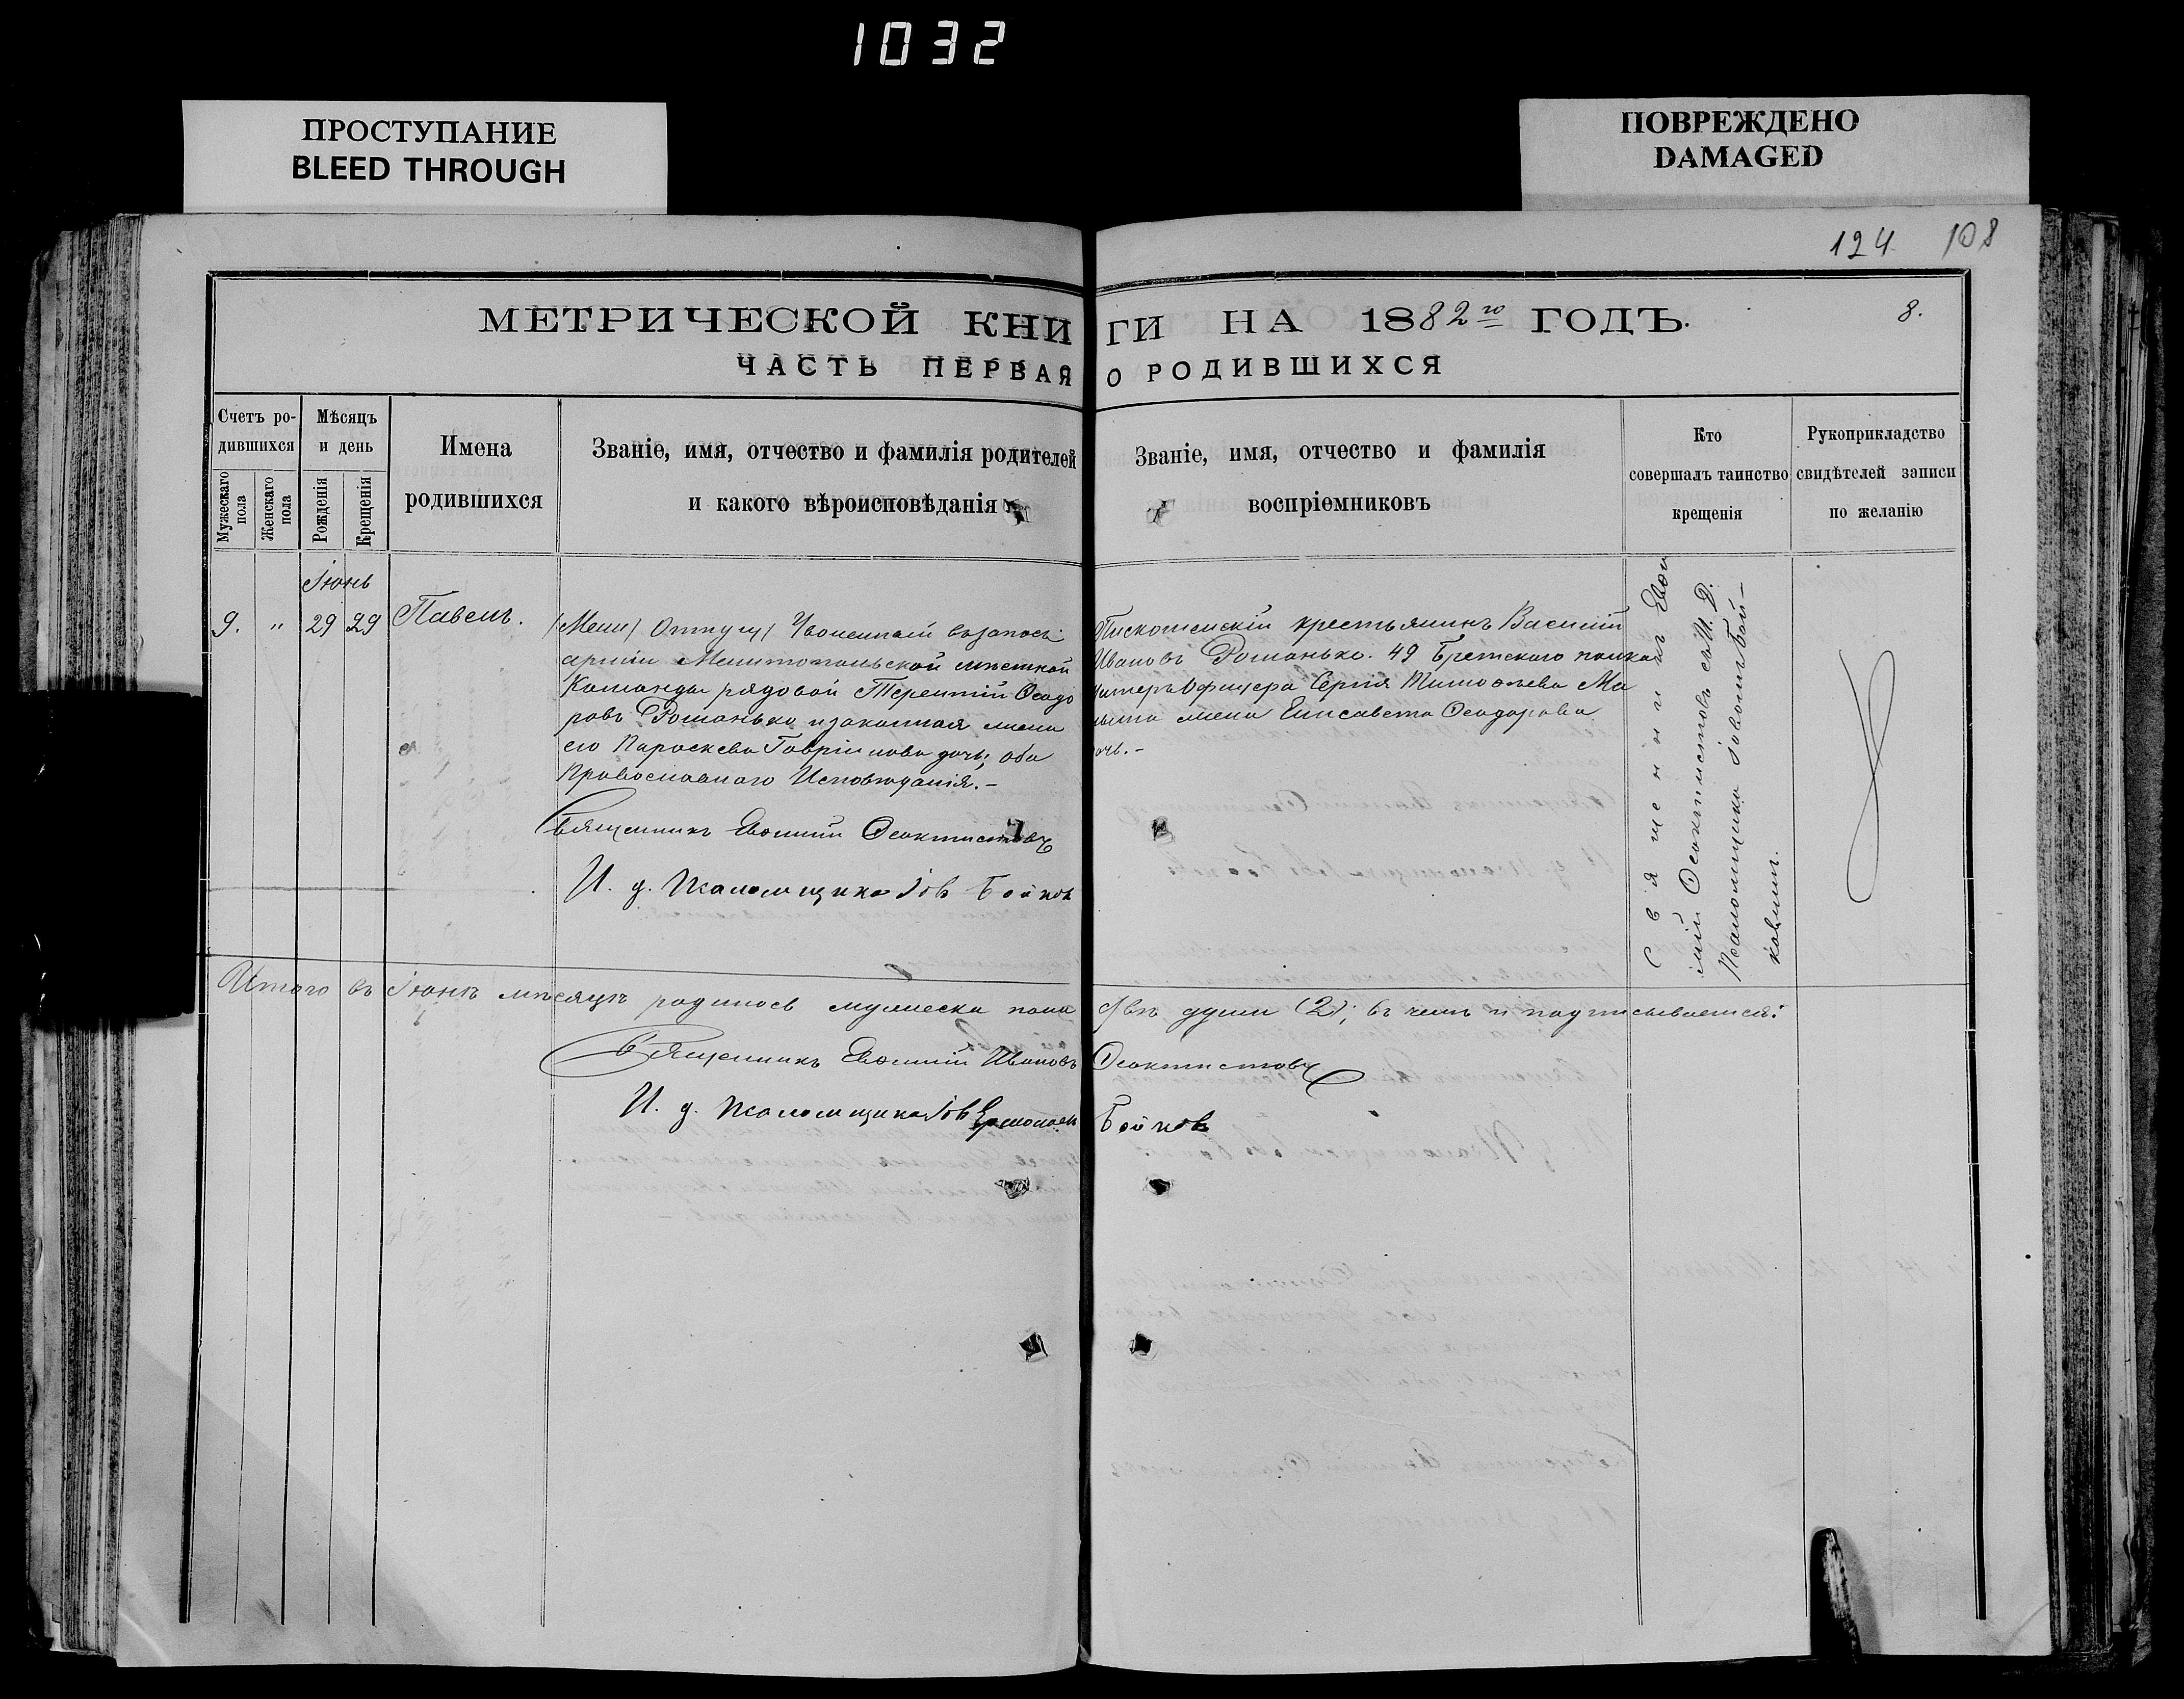 1032
ПРОСТУПАНИЕ
BLEED THROUGH
ПОВРЕЖДЕНО
DAMAGED
124. 108
МЕТРИЧЕСКОЙ КНИГИ НА 1882го ГОДЪ.
8.
ЧАСТЬ ПЕРВАЯ О РОДИВШИХСЯ
Счетъ ро-
дившихся
Мужескаго пола
Женскаго пола
Мѣсяцъ
и день
Рожденія
Крещенія
Имена
родившихся
Званіе, имя, отчество и фамилія родителей
и какого вѣроисповѣданія
Званіе, имя, отчество и фамилія
воспріемниковъ
Кто
совершалъ таинство
крещенія
Рукоприкладство
свидѣтелей записи
по желанію
Іюнь
9. " 29 29 Павелъ.
Уволенный въ запасъ
арміи Мелитопольской мѣстной
Команды рядовой Терентій Ѳеодо
ровъ Романько и законная жена
его Параскева Гавріилова дочь; оба
Православнаго Исповѣданія.-
Священникъ Евѳимій Ѳеоктистовъ
И. д. Псаломщика Іовъ Бойков
крестьянинъ Василій
Ивановъ Романько. 49 Брестскаго полка
Унтеръ Офицера Сергія Тимоѳеева Ма
жена Елисавета Ѳеодорова
дочь.-
Священникъ Евѳи
мій Ѳеоктистовъ съ И. Д.
Псаломщика Іовомъ Бой-
ковымъ.
Итого въ Іюнѣ мѣсяцѣ родилось мужеска пола двѣ души (2); въ чемъ и подписываемся:
Священникъ Евѳимій Ивановъ Ѳеоктистовъ
И. д. Псаломщика Іовъ Бойковъ